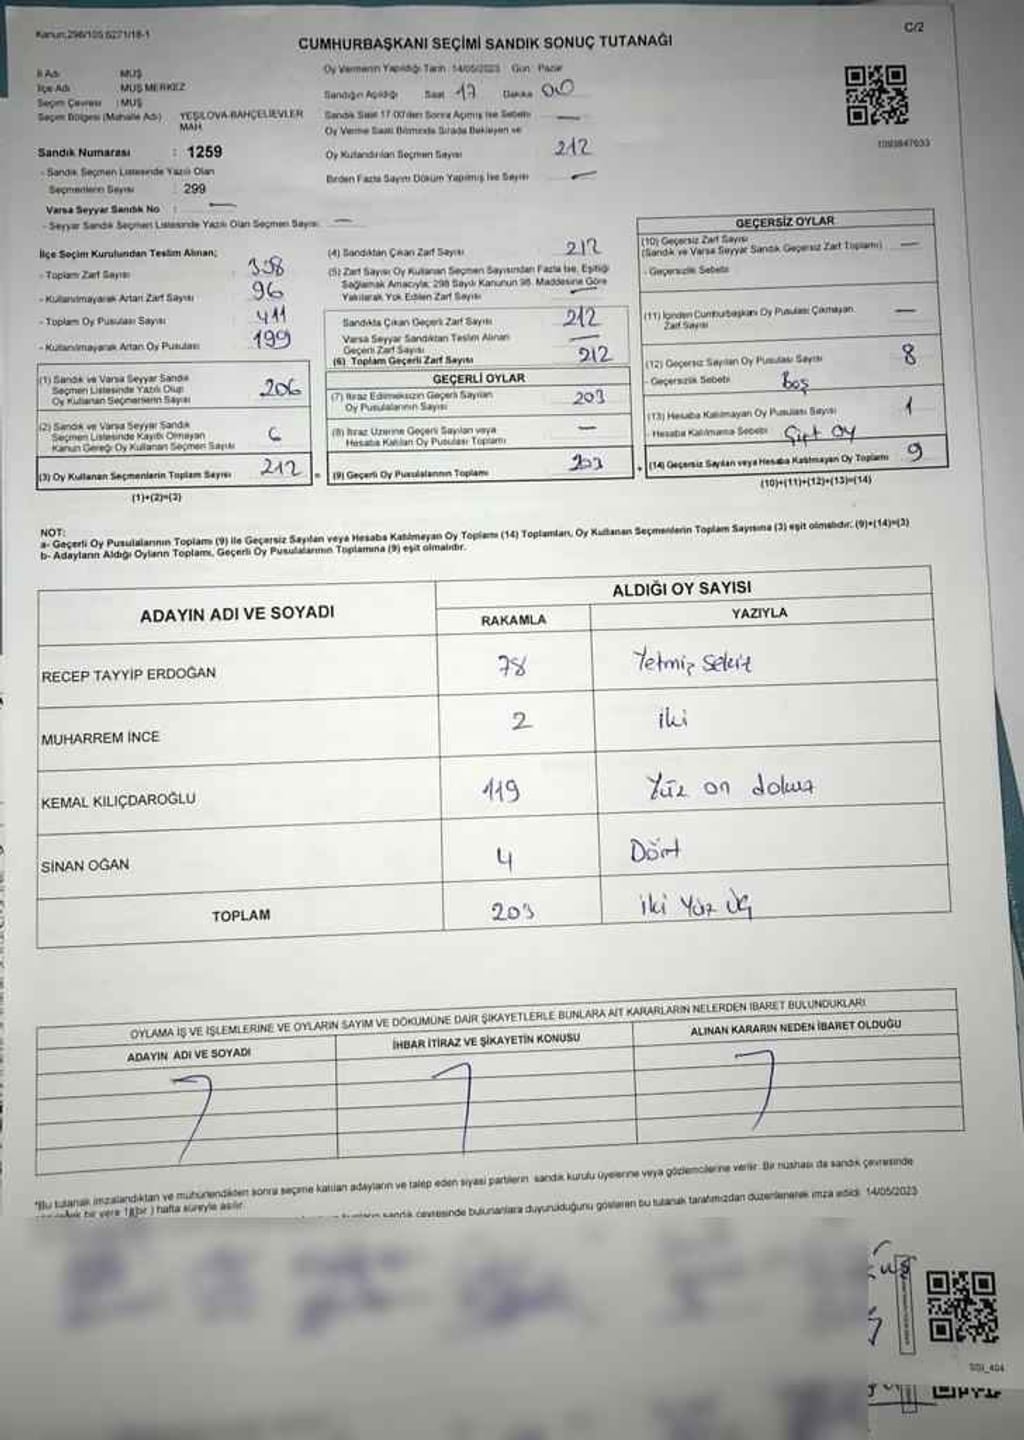 Kanun:298/105.6271/18-1
C/2
CUMHURBAŞKANI SEÇİMİ SANDIK SONUÇ TUTANAĞI
İl Adı MUŞ
İlçe Adı MUŞ MERKEZ
Seçim Çevresi : MUŞ
Seçim Bölgesi (Mahalle Adı) YEŞİLOVA-BAHÇELİEVLER MAH.
Sandık Numarası : 1259
- Sandık Seçmen Listesinde Yazılı Olan
Seçmenlerin Sayısı : 299
Varsa Seyyar Sandık No : —
- Seyyar Sandık Seçmen Listesinde Yazılı Olan Seçmen Sayısı: —
Oy Vermenin Yapıldığı Tarih: 14/05/2023 Gün: Pazar
Sandığın Açıldığı Saat 17 Dakika 00
Sandık Saat 17.00'den Sonra Açılmış İse Sebebi —
Oy Verme Saati Bitiminde Sırada Bekleyen ve
Oy Kullandırılan Seçmen Sayısı 212
Birden Fazla Sayım Döküm Yapılmış İse Sayısı —
1093847633
İlçe Seçim Kurulundan Teslim Alınan;
- Toplam Zarf Sayısı 308
- Kullanılmayarak Artan Zarf Sayısı 96
- Toplam Oy Pusulası Sayısı 411
- Kullanılmayarak Artan Oy Pusulası 199
(1) Sandık ve Varsa Seyyar Sandık
Seçmen Listesinde Yazılı Olup
Oy Kullanan Seçmenlerin Sayısı 206
(2) Sandık ve Varsa Seyyar Sandık
Seçmen Listesinde Kayıtlı Olmayan
Kanun Gereği Oy Kullanan Seçmen Sayısı 6
(3) Oy Kullanan Seçmenlerin Toplam Sayısı 212 =
(1)+(2)=(3)
(4) Sandıktan Çıkan Zarf Sayısı 212
(5) Zarf Sayısı Oy Kullanan Seçmen Sayısından Fazla İse, Eşitliği
Sağlamak Amacıyla; 298 Sayılı Kanunun 98. Maddesine Göre
Yakılarak Yok Edilen Zarf Sayısı —
Sandıkta Çıkan Geçerli Zarf Sayısı 212
Varsa Seyyar Sandıktan Teslim Alınan
Geçerli Zarf Sayısı —
(6) Toplam Geçerli Zarf Sayısı 212
GEÇERLİ OYLAR
(7) İtiraz Edilmeksizin Geçerli Sayılan
Oy Pusulalarının Sayısı 203
(8) İtiraz Üzerine Geçerli Sayılan veya
Hesaba Katılan Oy Pusulası Toplamı —
(9) Geçerli Oy Pusulalarının Toplamı 203 +
GEÇERSİZ OYLAR
(10) Geçersiz Zarf Sayısı —
(Sandık ve Varsa Seyyar Sandık Geçersiz Zarf Toplamı)
- Geçersizlik Sebebi
(11) İçinden Cumhurbaşkanı Oy Pusulası Çıkmayan —
Zarf Sayısı
(12) Geçersiz Sayılan Oy Pusulası Sayısı 8
- Geçersizlik Sebebi Boş
(13) Hesaba Katılmayan Oy Pusulası Sayısı 1
- Hesaba Katılmama Sebebi Çift oy
(14) Geçersiz Sayılan veya Hesaba Katılmayan Oy Toplamı 9
(10)+(11)+(12)+(13)=(14)
NOT:
a- Geçerli Oy Pusulalarının Toplamı (9) ile Geçersiz Sayılan veya Hesaba Katılmayan Oy Toplamı (14) Toplamları, Oy Kullanan Seçmenlerin Toplam Sayısına (3) eşit olmalıdır. (9)+(14)=(3)
b- Adayların Aldığı Oyların Toplamı, Geçerli Oy Pusulalarının Toplamına (9) eşit olmalıdır.
ADAYIN ADI VE SOYADI ALDIĞI OY SAYISI
RAKAMLA YAZIYLA
RECEP TAYYİP ERDOĞAN 78 Yetmiş sekiz
MUHARREM İNCE 2 iki
KEMAL KILIÇDAROĞLU 119 Yüz on dokuz
SİNAN OĞAN 4 Dört
TOPLAM 203 iki Yüz Üç
OYLAMA İŞ VE İŞLEMLERİNE VE OYLARIN SAYIM VE DÖKÜMÜNE DAİR ŞİKAYETLERLE BUNLARA AİT KARARLARIN NELERDEN İBARET BULUNDUKLARI
ADAYIN ADI VE SOYADI İHBAR İTİRAZ VE ŞİKAYETİN KONUSU ALINAN KARARIN NEDEN İBARET OLDUĞU
*Bu tutanak imzalandıktan ve mühürlendikten sonra seçime katılan adayların ve talep eden siyasi partilerin sandık kurulu üyelerine veya gözlemcilerine verilir. Bir nüshası da sandık çevresinde
bir yere 1(bir) hafta süreyle asılır.
sandık çevresinde bulunanlara duyurulduğunu gösteren bu tutanak tarafımızdan düzenlenerek imza edildi. 14/05/2023